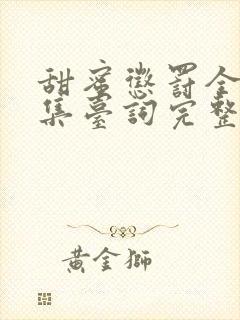 甜蜜懲罰全
集臺詞完整
黃金獅